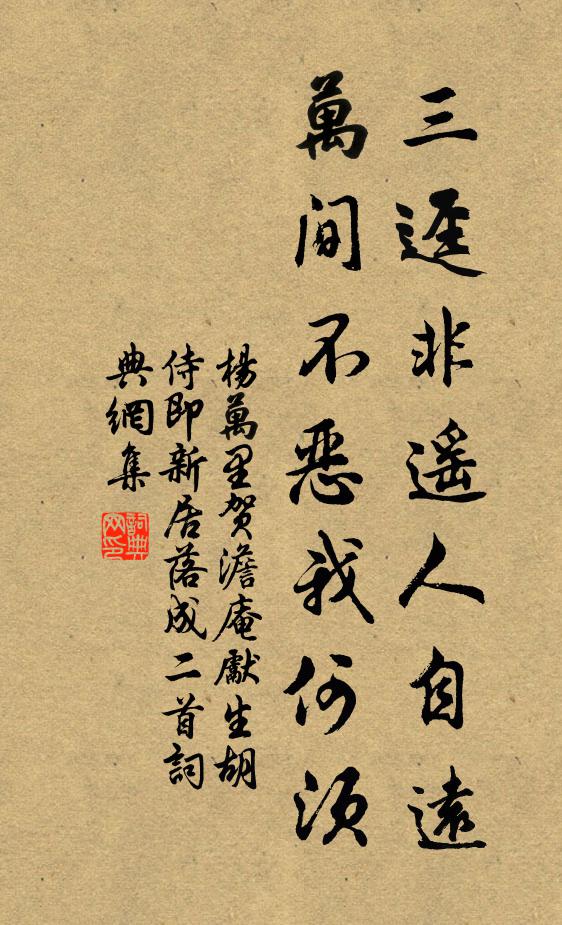 三逕非遙人自遠
萬間不惡我何須
楊萬里賀澹庵獻生胡
侍即新居落成二首詞
典網集
詞典
网印